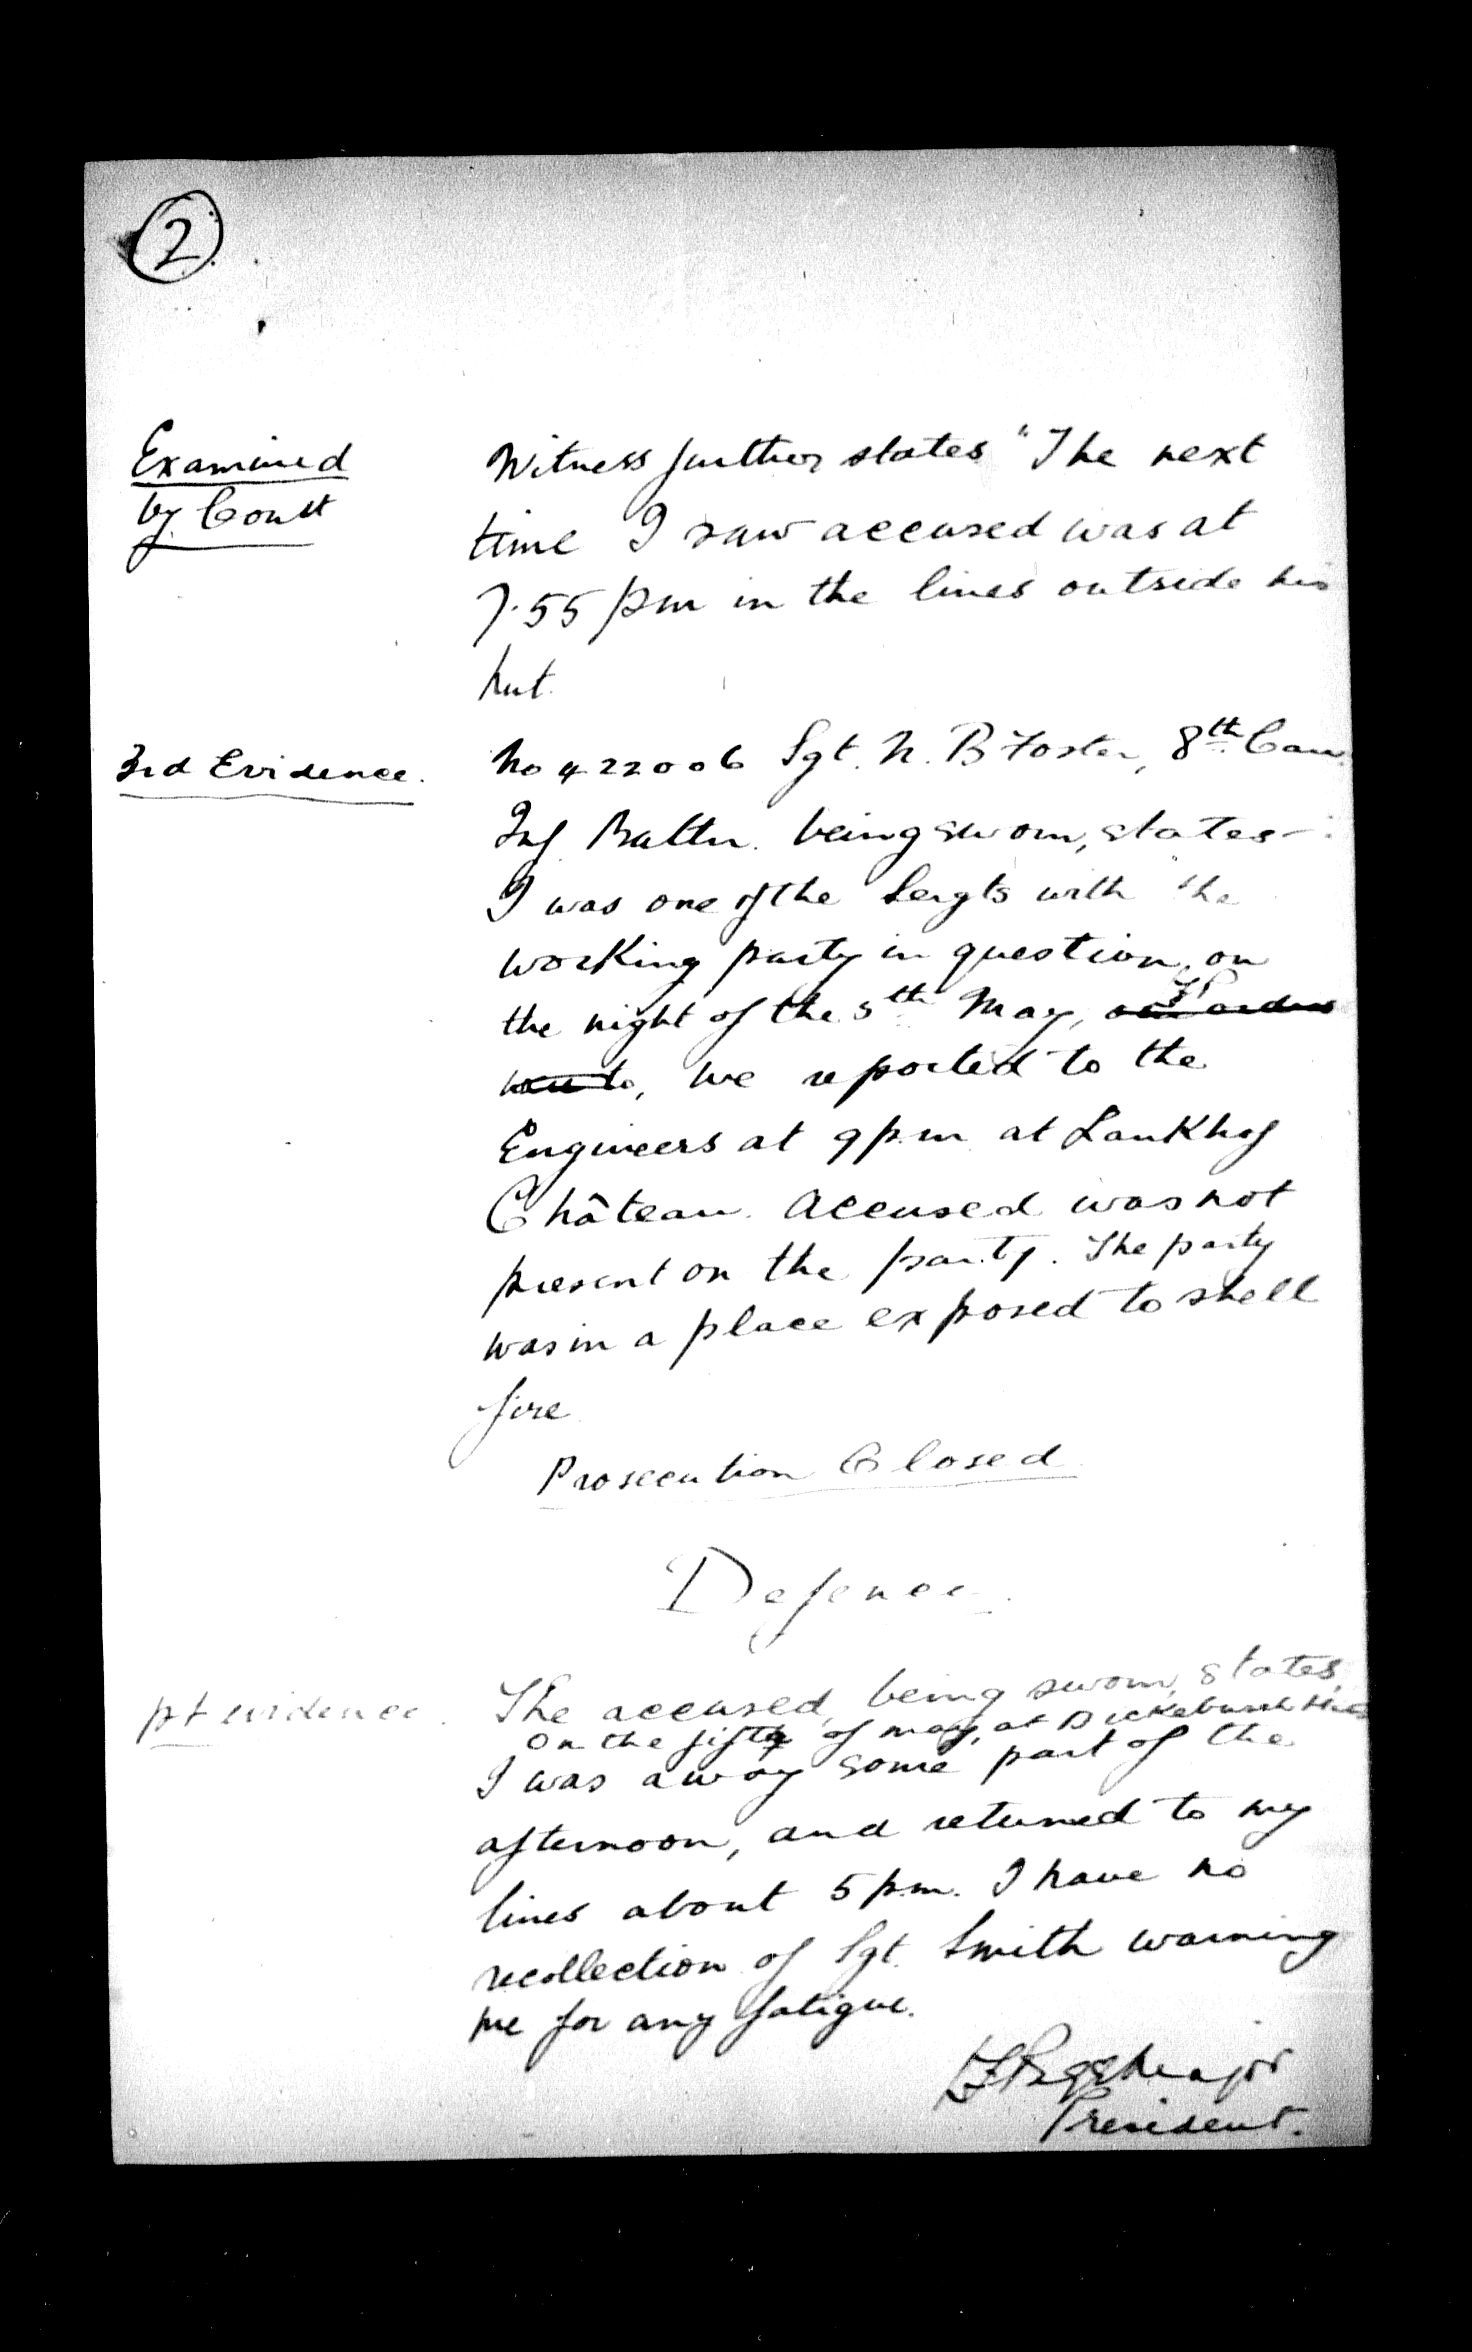 2
Examined
by Court
Witness further states "The next
time I saw accused was at
7.55 pm in the lines outside his
hut.
3rd Evidence.
No 422006 Sgt. N. B Foster, 8th Can
Inf Battn. being sworn, states -:
I was one of the Sergts with the
working party in question, on
the night of the 5th May,
we reported to the
Engineers at 9 p.m at Lankhof
Château. Accused was not
present on the party. The party
was in a place exposed to shell
fire
Prosecution Closed
Defence.
1st evidence.
The accused, being sworn, states,
On the fifth of may, at Dickebusch Huts
I was away some part of the
afternoon, and returned to my
lines about 5 p.m. I have no
recollection of Sgt. Smith warning
me for any fatigue.
Major
President.